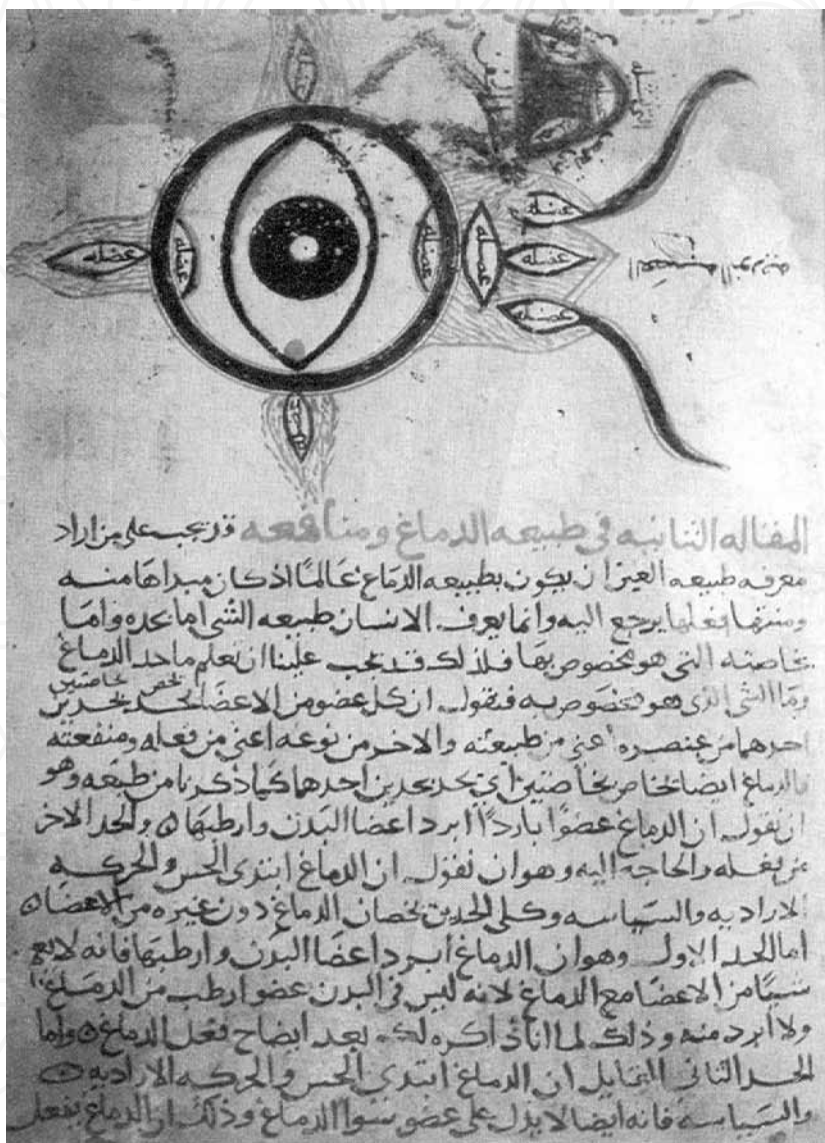 عضله
عضله
عضله
عضله
عضله
عضله
عضله
عضله
عضله
العصبه النوريه
المقاله الثانيه في طبيعه الدماغ ومنافعه قد يجب على من اراد
معرفه طبيعه العين ان يكون بطبيعه الدماغ عالمًا اذ كان مبداها منه
ومنتهى فعلها يرجع اليه وانما يعرف الانسان طبيعه الشي اما بحده واما
بخاصته التي هو مخصوص بها فلذلك قد يجب علينا ان نعلم ما حد الدماغ
وما الشي الذي هو مخصوص به فنقول ان كل عضو من الاعضا يحد بحدين
يخص بخاصتين
احدهما من عنصره اعني من طبيعته والاخر من نوعه اعني من فعله ومنفعته
فالدماغ ايضا بخاصتين اي يحد بحدين احدهما كما ذكرنا من طبعه وهو
ان نقول ان الدماغ عضوًا باردًا ابرد اعضا البدن وارطبها والحد الاخر
من فعله والحاجه اليه وهو ان نقول ان الدماغ ابتدى الحس والحركه
الاراديه والسياسه وكلى الحدين يخصان الدماغ دون غيره من الاعضا
اما الحد الاول وهو ان الدماغ أبرد اعضا البدن وارطبها فانه لا يعم
شيئًا من الاعضا مع الدماغ لانه ليس في البدن عضو ارطب من الدماغ
ولا ابرد منه وذلك لما انا ذاكره لك بعد ايضاح فعل الدماغ واما
الحد الثاني القايل ان الدماغ ابتدى الحس والحركه الاراديه
والسياسه فانه ايضا لا يدل على عضو سوا الدماغ وذلك ان الدماغ يفعل